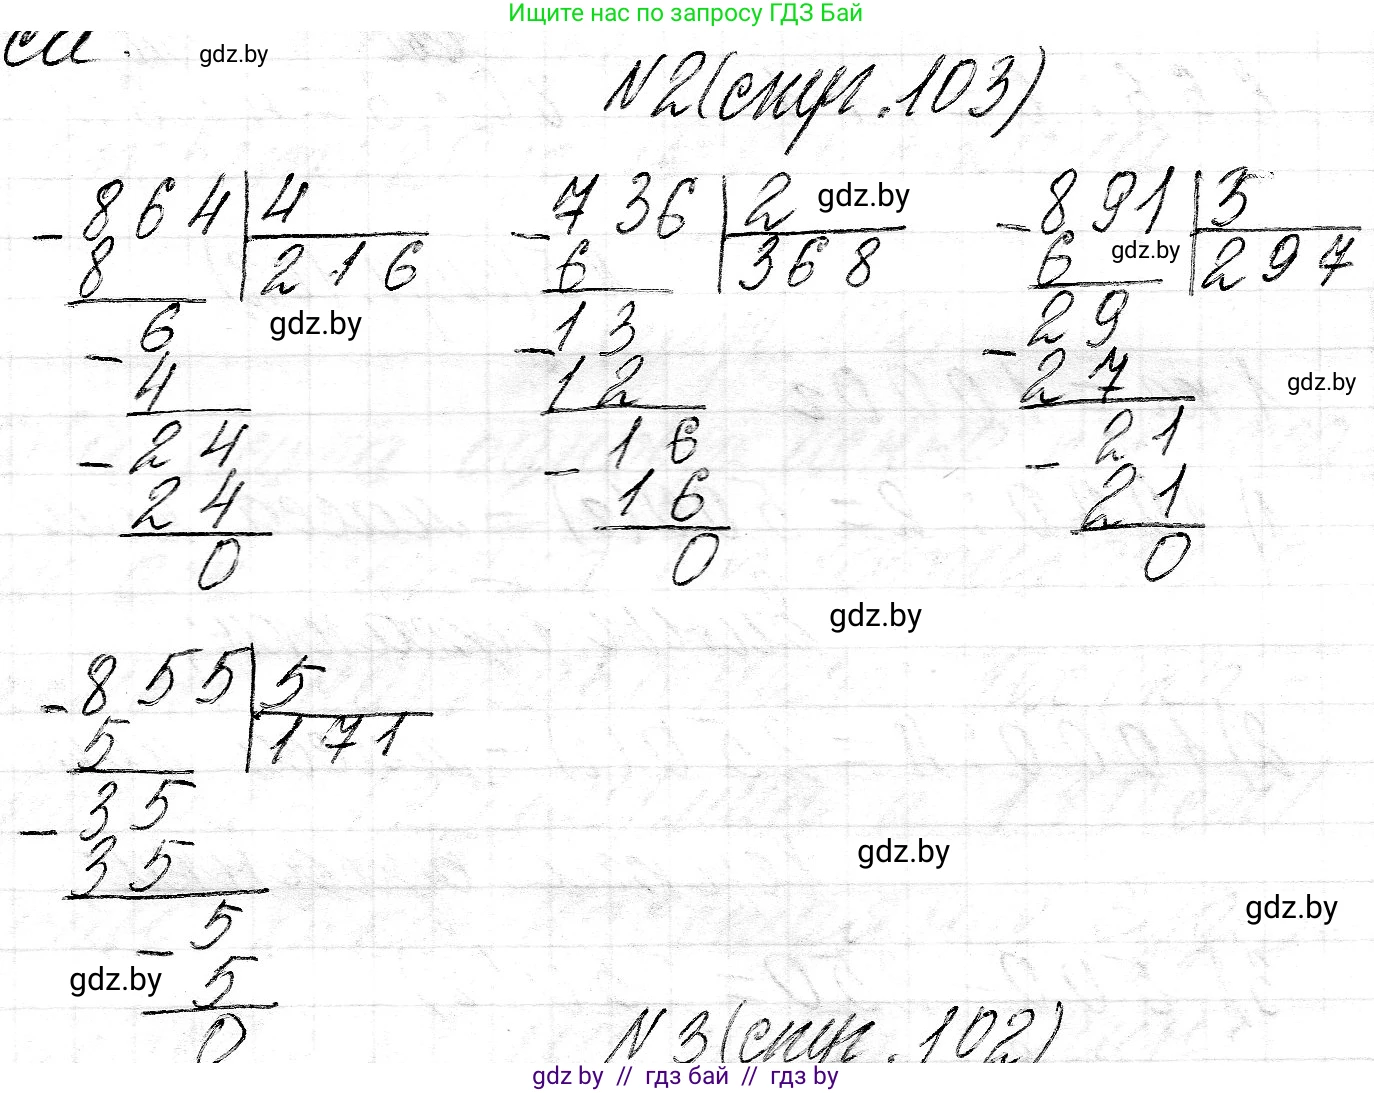 Ищите нас по запросу ГДЗ Бай
gdz.by
N2(стр.103)
- 864 | 4
8 | 216
- 6
4
- 24
24
0
gdz.by
- 736 | 2
6 | 368
- 13
12
- 16
16
0
gdz.by
- 891 | 3
6 | 297
- 29
27
- 21
21
0
gdz.by
gdz.by
gdz.by
- 855 | 5
5 | 171
- 35
35
- 5
5
0
gdz.by
gdz.by
gdz.by
N3(стр.102)
gdz by // гдз бай // гдз by